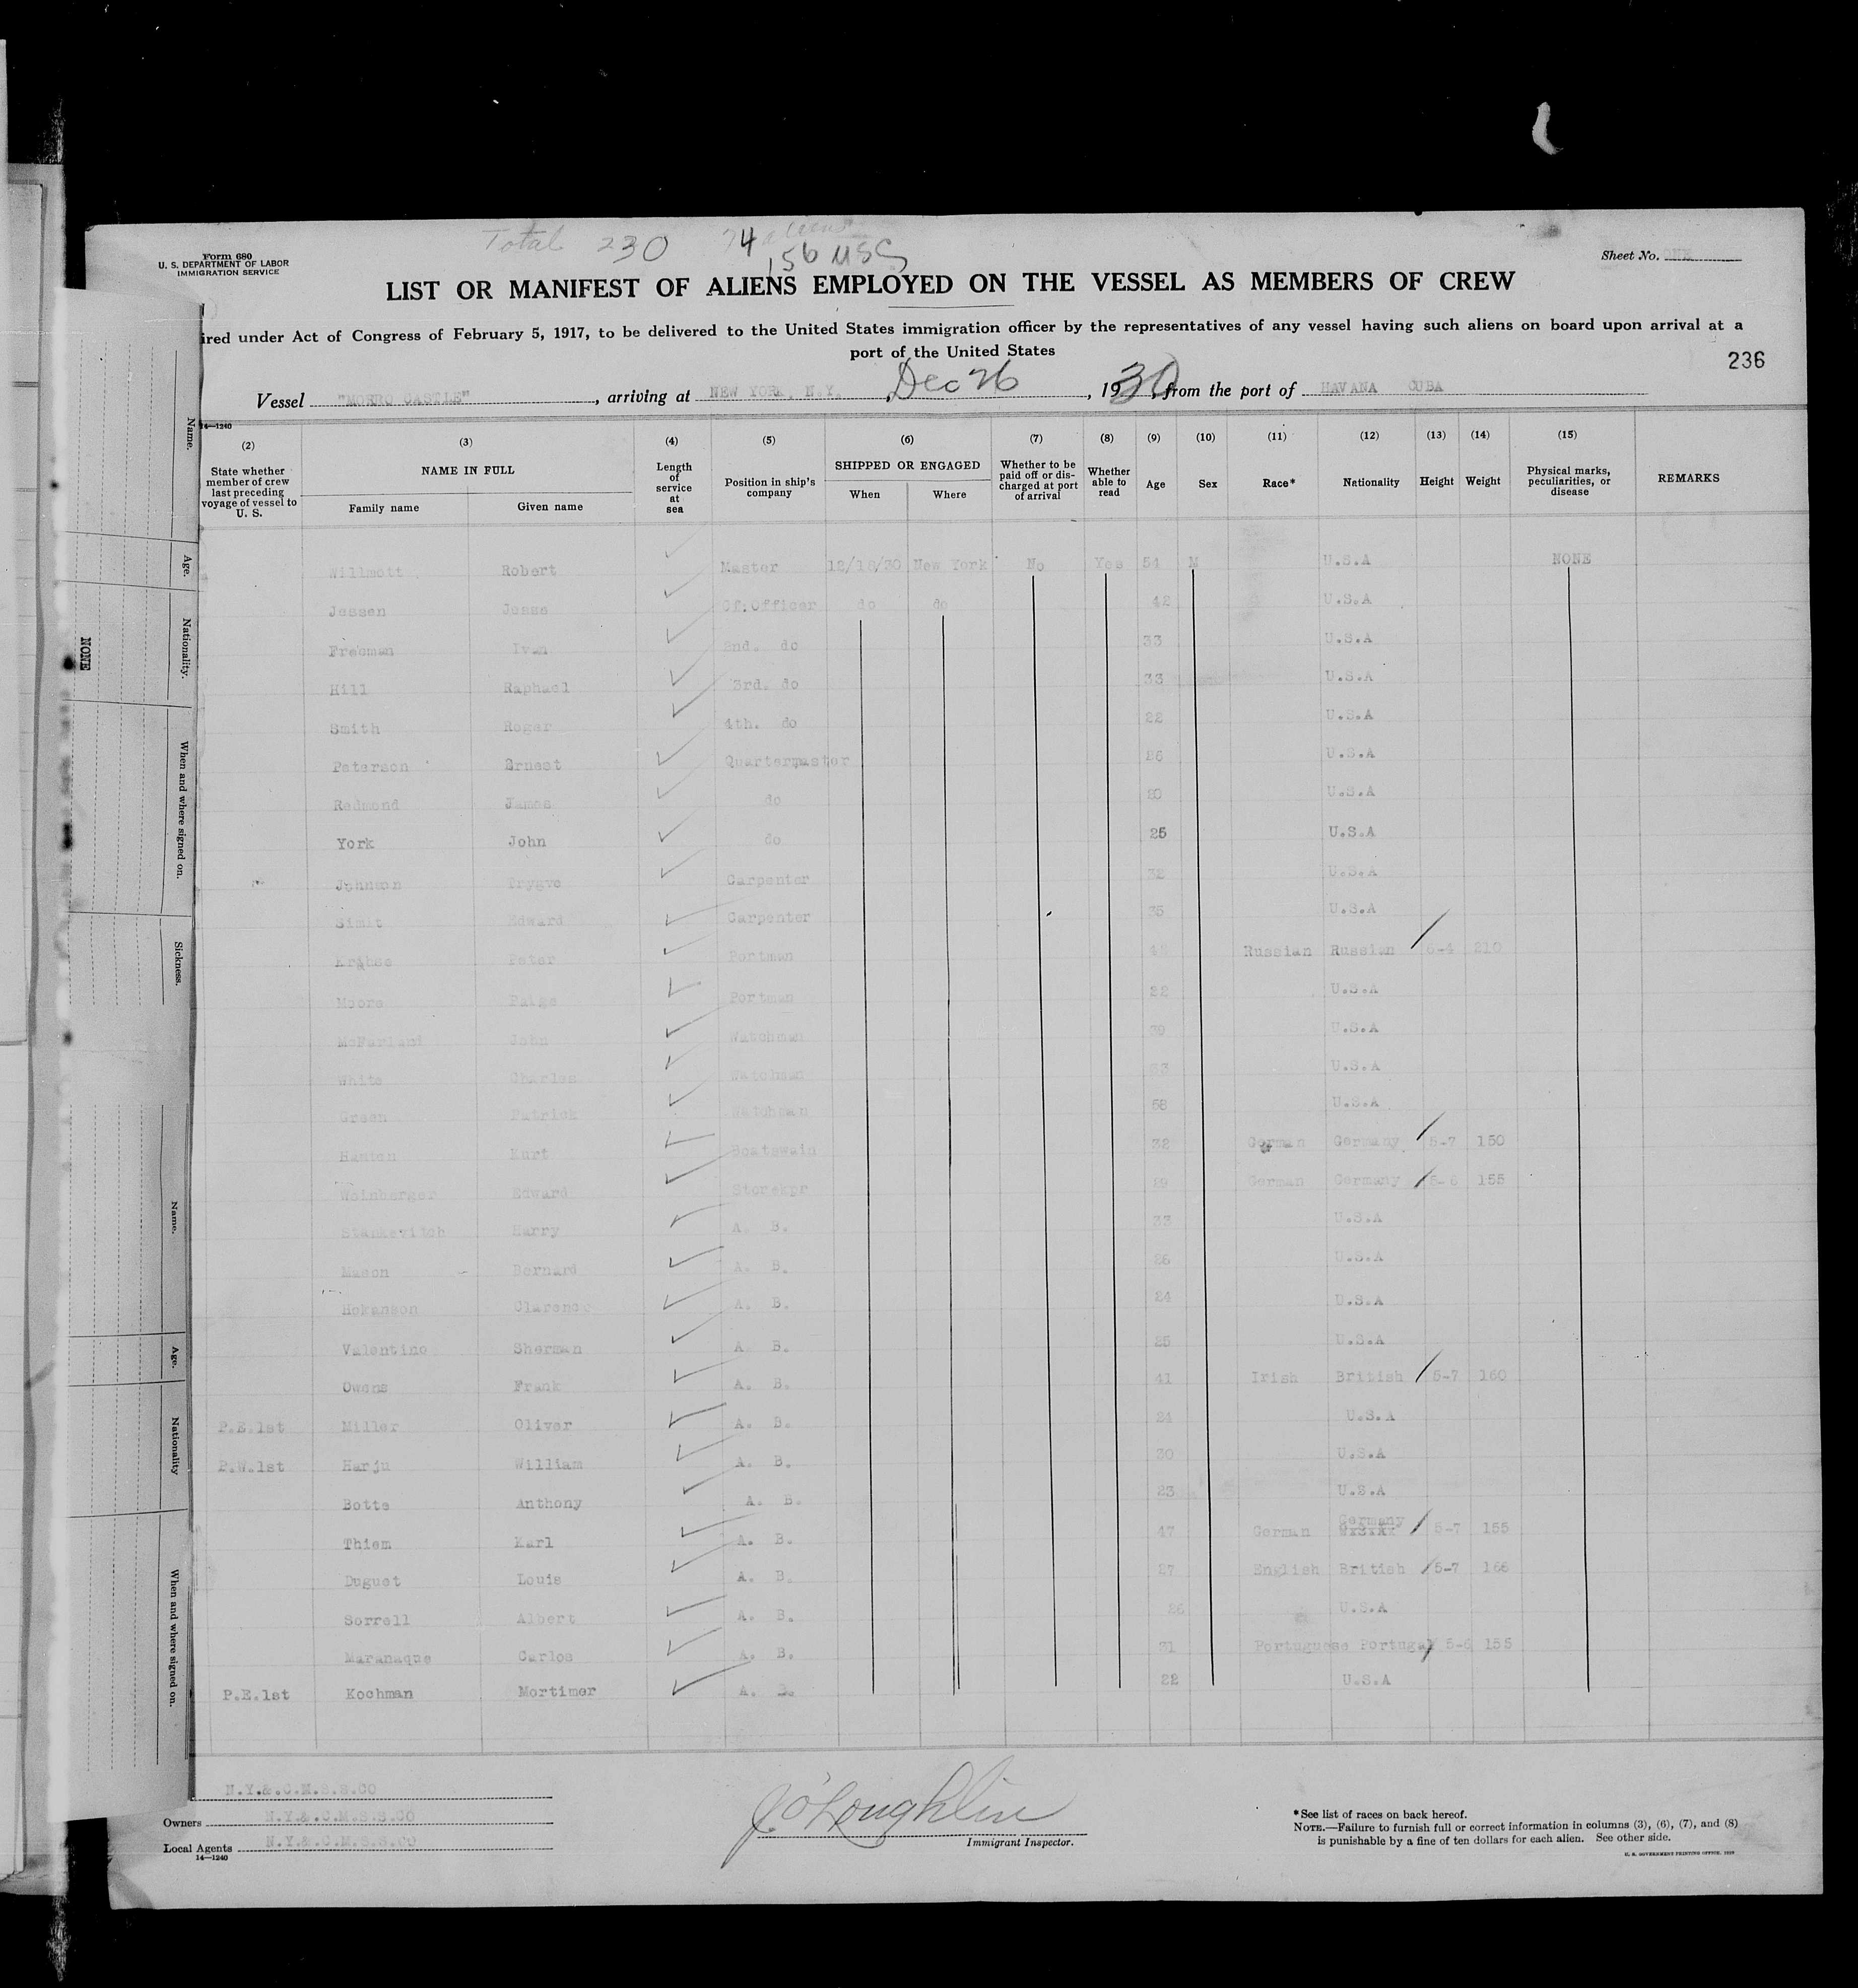 Total 230 74 aliens
156 USC
Form 680
U. S. DEPARTMENT OF LABOR
IMMIGRATION SERVICE
Sheet No.
LIST OR MANIFEST OF ALIENS EMPLOYED ON THE VESSEL AS MEMBERS OF CREW
ired under Act of Congress of February 5, 1917, to be delivered to the United States immigration officer by the representatives of any vessel having such aliens on board upon arrival at a
port of the United States
236
Vessel "MORRO CASTLE", arriving at NEW YORK, N.Y., Dec 26, 1930, from the port of HAVANA CUBA
14—1240
(2) (3) (4) (5) (6) (7) (8) (9) (10) (11) (12) (13) (14) (15)
State whether member of crew last preceding voyage of vessel to U. S.
NAME IN FULL
Family name Given name
Length of service at sea
Position in ship's company
SHIPPED OR ENGAGED
When Where
Whether to be paid off or discharged at port of arrival
Whether able to read
Age Sex Race* Nationality Height Weight
Physical marks, peculiarities, or disease
REMARKS
Willmott Robert Master 12/18/30 New York No Yes 54 M U.S.A NONE
Jessen Jesse Cf.Officer do do 42 U.S.A
Freeman Ivan 2nd. do 33 U.S.A
Hill Raphael 3rd. do 33 U.S.A
Smith Roger 4th. do 22 U.S.A
Peterson Ernest Quartermaster 26 U.S.A
Redmond James do 20 U.S.A
York John do 25 U.S.A
Johnson Trygve Carpenter 32 U.S.A
Simit Edward Carpenter 35 U.S.A
Peter Portman Russian Russian 5-4 210
Moore Paige Portman 22 U.S.A
McFarland John Watchman 39 U.S.A
White Charles Watchman U.S.A
Green Patrick Watchman 58 U.S.A
Kurt Boatswain 32 German Germany 5-7 150
Weinberger Edward Storekpr 29 German Germany 5-8 155
Stankevitch Harry A. B. 33 U.S.A
Mason Bernard A. B. 26 U.S.A
Hokanson Clarence A. B. 24 U.S.A
Valentine Sherman A B. 25 U.S.A
Owens Frank A. B. 41 Irish British 5-7 160
P.E.1st Miller Oliver A. B. 24 U.S.A
P.W.1st Harju William A. B. 30 U.S.A
Botte Anthony A. B. 23 U.S.A
Thiem Karl A. B. 47 German Germany 5-7 155
Duguet Louis A. B. 27 English British 5-7 166
Sorrell Albert A. B. 26 U.S.A
Maranaque Carlos A. B. 31 Portuguese Portugal 5-6 155
P.E.1st Kochman Mortimer A. B. 22 U.S.A
N.Y.&.C.M.S.S.CO
Owners N.Y.&.C.M.S.S.CO
Local Agents N.Y.&.C.M.S.S.CO
14—1240
J O'Loughlin
Immigrant Inspector.
*See list of races on back hereof.
NOTE.—Failure to furnish full or correct information in columns (3), (6), (7), and (8)
is punishable by a fine of ten dollars for each alien. See other side.
Name.
Age.
Nationality.
NONE
When and where signed on.
Sickness.
Name.
Age.
Nationality
When and where signed on.